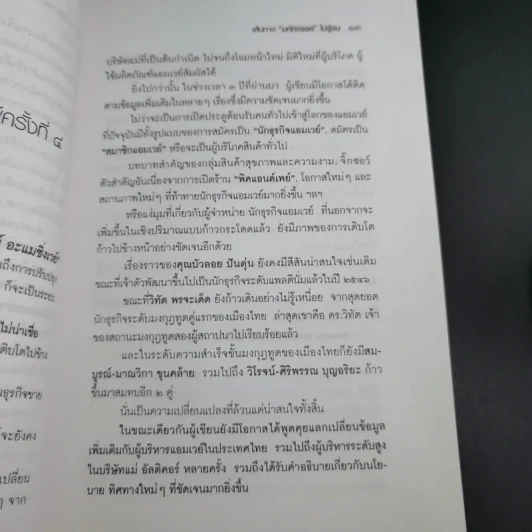 เส้นทาง "มหัศจรรย์" ไม่รู้จบ ๑๓
บริษัทแม่ที่เป็นต้นกำเนิด ไปจนถึงโฉมหน้าใหม่ มิติใหม่ที่ผู้บริโภค ผู้
ใช้ผลิตภัณฑ์แอมเวย์สัมผัสได้
ยิ่งไปกว่านั้น ในช่วงเวลา ๓ ปีที่ผ่านมา ผู้เขียนมีโอกาสได้ติด
ตามข้อมูลเพิ่มเติมในหลายๆ เรื่องซึ่งมีความชัดเจนมากยิ่งขึ้น
ไม่ว่าจะเป็นการเปิดประตูต้อนรับคนทั่วไปเข้าสู่โลกของแอมเวย์
ที่ปัจจุบันมีทั้งรูปแบบของการสมัครเป็น "นักธุรกิจแอมเวย์", สมัครเป็น
"สมาชิกแอมเวย์" หรือจะเป็นผู้บริโภคสินค้าทั่วไป
บทบาทสำคัญของกลุ่มสินค้าสุขภาพและความงาม, จิ๊กซอว์
ตัวสำคัญอันเนื่องจากการเปิดร้าน "พิคแอนด์เพย์", โอกาสใหม่ๆ และ
สถานภาพใหม่ๆ ที่ท้าทายนักธุรกิจแอมเวย์มากยิ่งขึ้น ฯลฯ
หรือแง่มุมที่เกี่ยวกับผู้จำหน่าย นักธุรกิจแอมเวย์ ที่นอกจากจะ
เพิ่มขึ้นในเชิงปริมาณแบบก้าวกระโดดแล้ว ยังมีภาพของการเติบโต
ก้าวไปข้างหน้าอย่างชัดเจนอีกด้วย
เรื่องราวของ คุณบัวลอย ปันตุ่น ยังคงมีสีสันน่าสนใจเช่นเดิม
ขณะที่เจ้าตัวพัฒนาขึ้นไปเป็นนักธุรกิจระดับแพลตินั่มแล้วในปี ๒๕๔๖
ขณะที่วิทัต พรจะเด็ด ยังก้าวเดินอย่างไม่รู้เหนื่อย จากสุดยอด
นักธุรกิจระดับมงกุฎทูตคู่แรกของเมืองไทย ล่าสุดเขาคือ ดร.วิทัต เจ้า
ของสถานะมงกุฎทูตสองผู้สถาปนาไปเรียบร้อยแล้ว
และในระดับความสำเร็จขั้นมงกุฎทูตของเมืองไทยก็ยังมีสม-
บูรณ์-มาณวิกา ขุนคล้าย รวมไปถึง วิโรจน์-ศิริพรรณ บุญอริยะ ก้าว
ขึ้นมาสมทบอีก ๒ คู่
นั่นเป็นความเปลี่ยนแปลงที่ล้วนแต่น่าสนใจทั้งสิ้น
ในขณะเดียวกันผู้เขียนยังมีโอกาสได้พูดคุยแลกเปลี่ยนข้อมูล
เพิ่มเติมกับผู้บริหารแอมเวย์ในประเทศไทย รวมไปถึงผู้บริหารระดับสูง
ในบริษัทแม่ อัลติคอร์ หลายครั้ง รวมถึงได้รับคำอธิบายเกี่ยวกับนโย-
บาย ทิศทางใหม่ๆ ที่ชัดเจนมากยิ่งขึ้น
ครั้งที่ ๔
อะเมซิ่งเวย์"
นถึงการปรับปรุง
ก็จะเป็นระยะ
ไม่น่าเชื่อ
เติบโตไปข้าง
ธุรกิจขาย
จะยังคง
เปลี่ยน
ๆ จาก